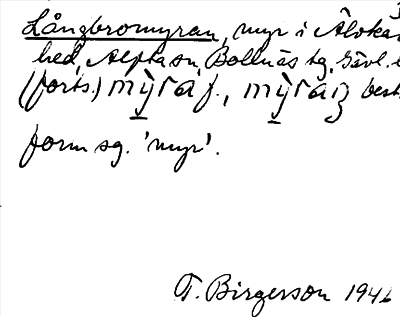 Långbromyran, myr i Älvkar
hed, Alfta sn, Bollnäs tg, Gävl. l
(forts.) mỳra f., mỳran best.
form sg. 'myr'.
T. Birgerson 1946